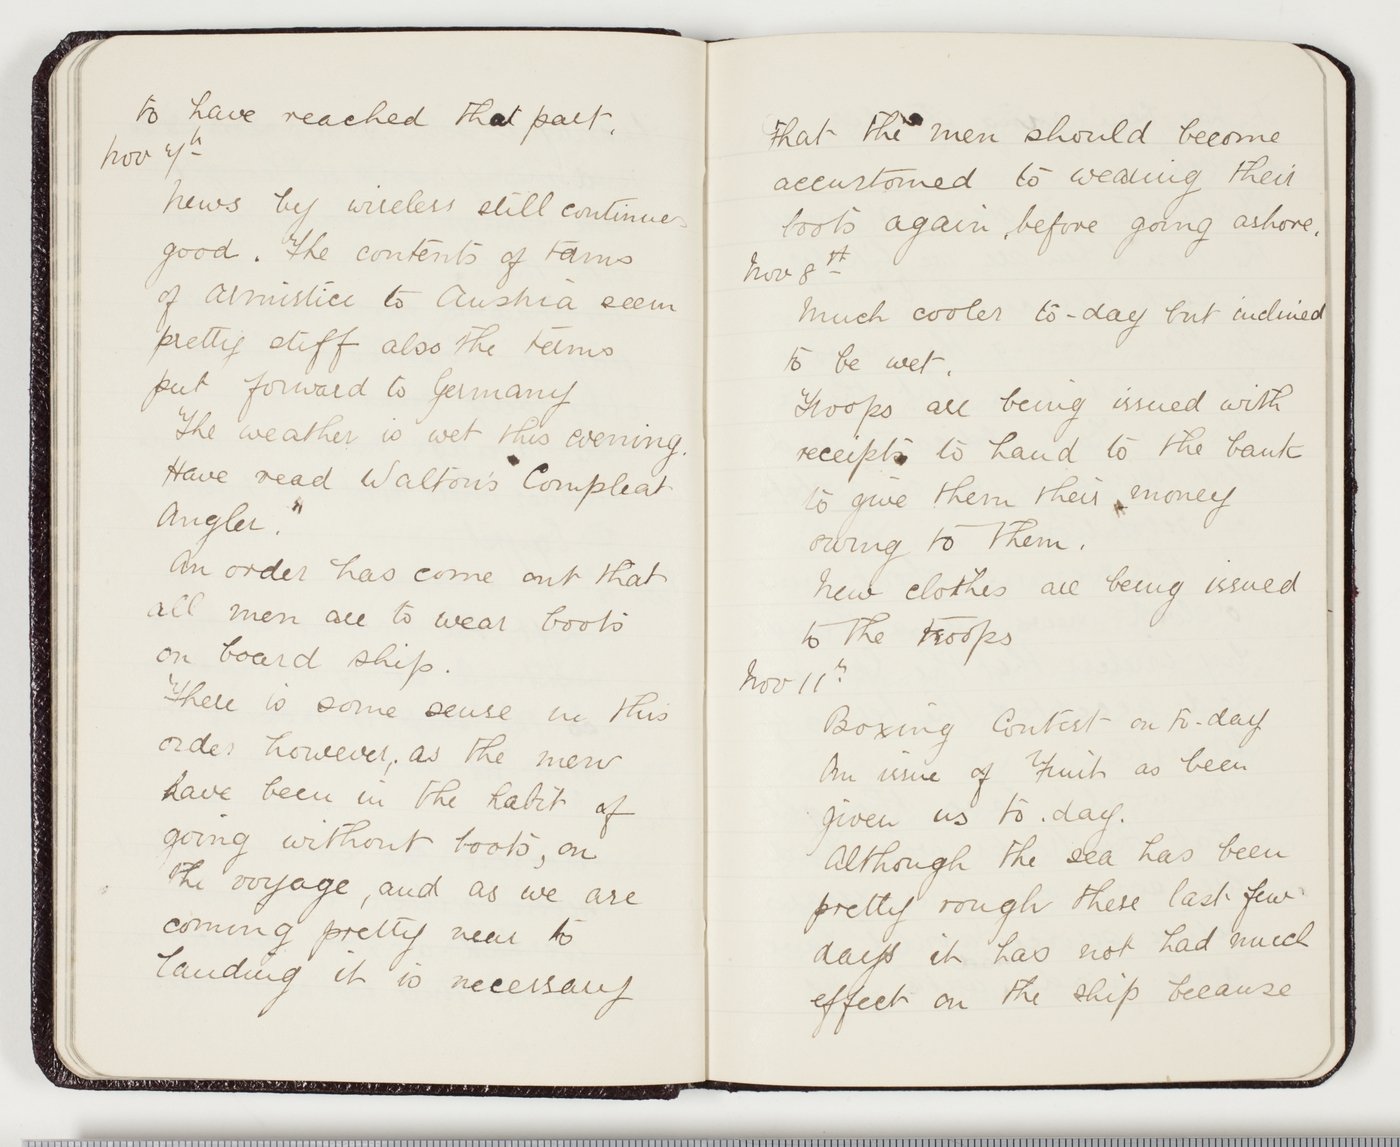 to have reached that part.
Nov 7th
News by wireless still continues
good. The contents of terms
of Armistice to Austria seem
pretty stiff also the terms
put forward to Germany
The weather is wet this evening.
Have read Walton's "Compleat
Angler."
An order has come out that
all men are to wear boots
on board ship.
There is some sense in this
order however, as the men
have been in the habit of
going without boots, on
the voyage, and as we are
coming pretty near to
landing it is necessary
that the men should become
accustomed to wearing their
boots again, before going ashore.
Nov 8th
Much cooler to-day but inclined
to be wet.
Troops are being issued with
receipts to hand to the bank
to give them their money
owing to them.
New clothes are being issued
to the troops
Nov 11th
Boxing Contest on to-day
An issue of Fruit as been
given us to-day.
Although the sea has been
pretty rough these last few
days it has not had much
effect on the ship because